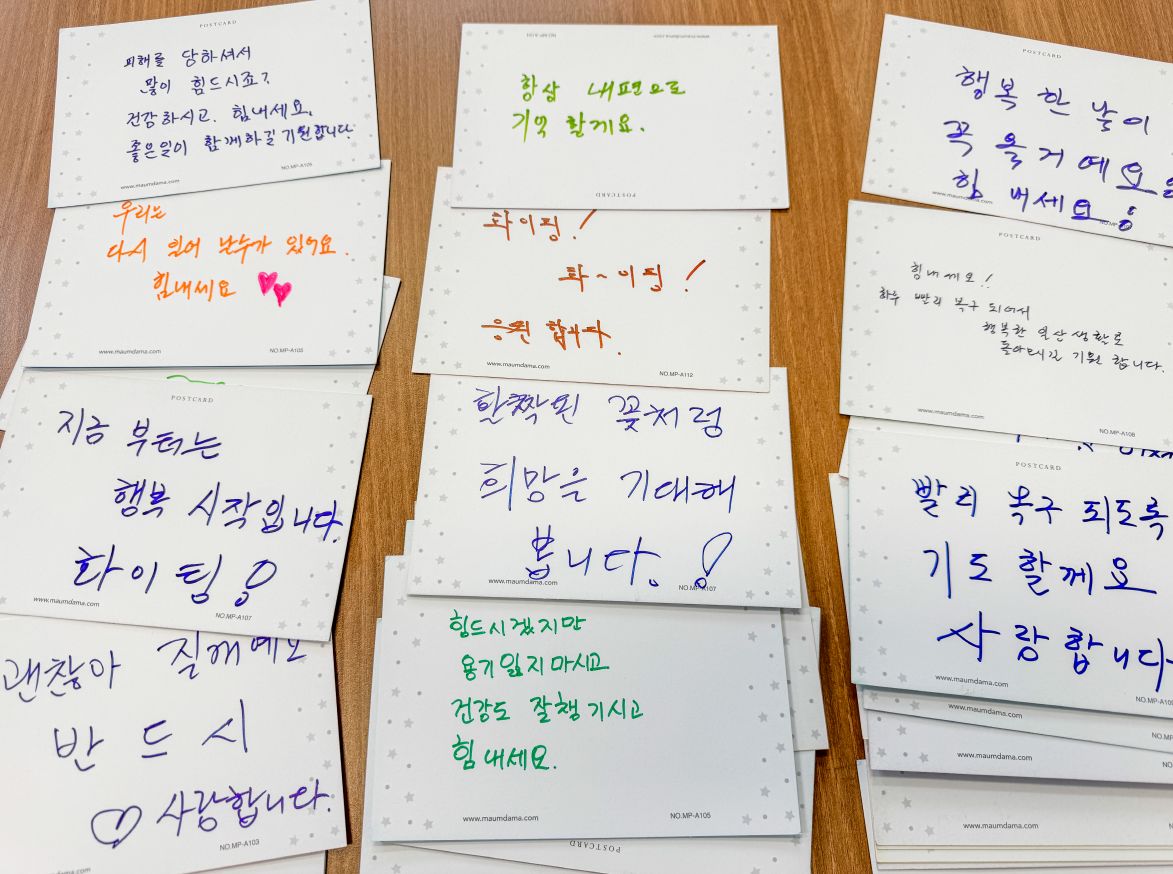 POSTCARD
피해를 당하셔서
많이 힘드시죠?
건강하시고. 힘내세요.
좋은일이 함께하길 기원합니다.
www.maumdama.com
NO.MP-A105
우리는
다시 일어 날수가 있어요.
힘내세요
www.maumdama.com
NO.MP-A105
POSTCARD
지금 부터는
행복 시작입니다.
화이팅!
www.maumdama.com
NO.MP-A107
괜찮아 질꺼예요
반드시
사랑합니다.
NO.MP-A103
www.maumdama.com
NO.MP-A101
www.maumdama.com
항상 내편으로
기억 할게요.
POSTCARD
화이팅!
화~이팅!
응원합니다.
www.maumdama.com
NO.MP-A112
활짝핀 꽃처럼
희망을 기대해
봅니다.!
www.maumdama.com
NO.MP-A107
힘드시겠지만
용기잃지마시고
건강도 잘챙기시고
힘내세요.
www.maumdama.com
NO.MP-A105
POSTCARD
POSTCARD
행복한 날이
꼭 올거예요
힘내세요
www.maumdama.com
POSTCARD
힘내세요!
하루 빨리 복구 되어서
행복한 일상생활로
돌아오시길 기원 합니다.
www.maumdama.com
NO.MP-A108
POSTCARD
빨리 복구 되도록
기도 할께요
사랑합니다
www.maumdama.com
NO.MP-A109
www.maumdama.com
www.maumdama.com
www.maumdama.com